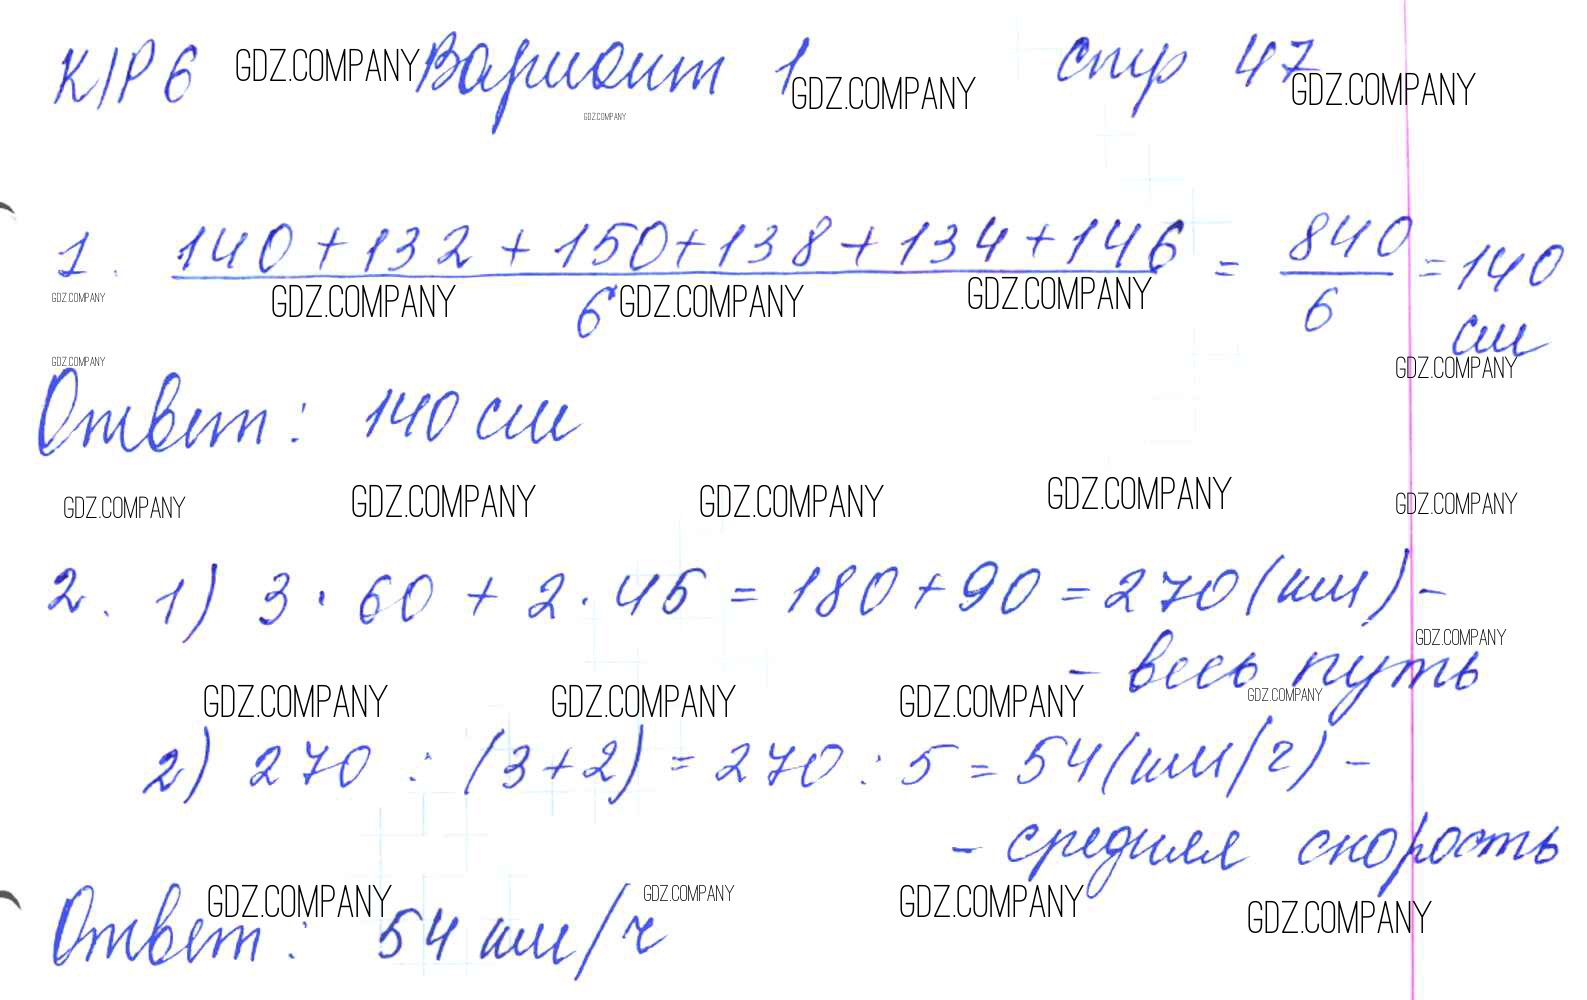 К/Р 6 GDZ.COMPANY Вариант 1 GDZ.COMPANY стр 47 GDZ.COMPANY
GDZ.COMPANY
1. 140 + 132 + 150 + 138 + 134 + 146 / 6 = 840 / 6 = 140 см
GDZ.COMPANY GDZ.COMPANY GDZ.COMPANY GDZ.COMPANY
GDZ.COMPANY GDZ.COMPANY
Ответ: 140 см
GDZ.COMPANY GDZ.COMPANY GDZ.COMPANY GDZ.COMPANY GDZ.COMPANY
2. 1) 3 · 60 + 2 · 45 = 180 + 90 = 270 (км) -
GDZ.COMPANY
- весь путь
GDZ.COMPANY GDZ.COMPANY GDZ.COMPANY GDZ.COMPANY
2) 270 : (3 + 2) = 270 : 5 = 54 (км/ч) -
- средняя скорость
GDZ.COMPANY GDZ.COMPANY GDZ.COMPANY GDZ.COMPANY
Ответ: 54 км/ч